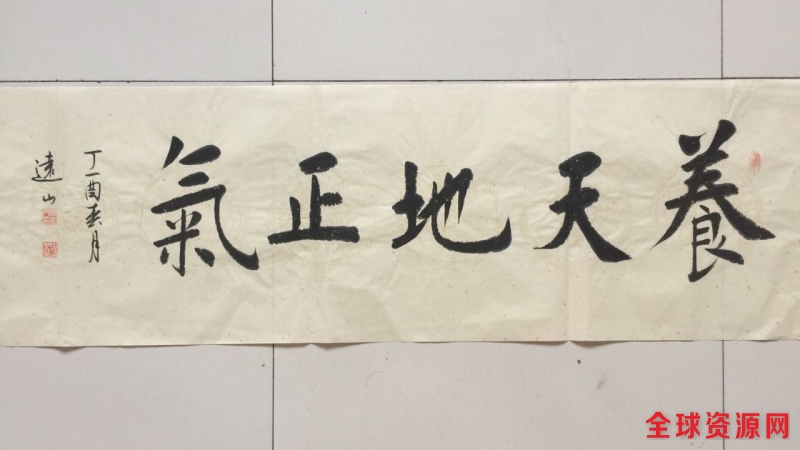 養天地正氣
丁酉春月
遠山
全球资源网